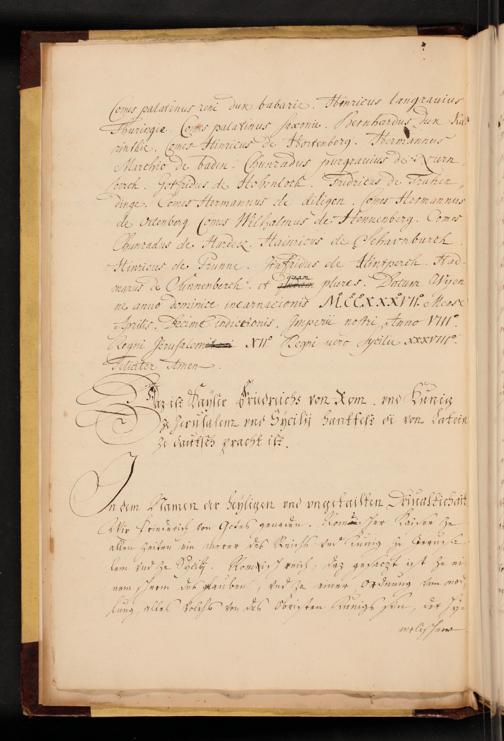 Comes palatinus reni dux babarie. Heinricus langravius
Thuringie. Comes palatinus saxonie. Bernhardus dux Ka
rinthie. Comes Heinricus de Hortenberg. Hermannus
Marchio de baden. Chunradus purgravius de Nurn
berch. Gotfridus de Hohenloch. Fridricus de Truhen
dinge. Comes Hermannus de diligen. Comes Hermannus
de Ortenberg Comes Wilhalmus de Hennenberg. Comes
Chunradus de Hardek. Hainricus de Scharnburch.
Heinricus de Prunne. Gunfridus de Hintperch. Had-
marus de Chunnenberch. et quam plures. Datum Wijen
ne anno dominice incarnacionis MCCXXXVII. Mense
Aprilis. Decime indictionis. Imperii nostri Anno VIII.
Regni Jerusalem XII. Regni vero sycilie XXXVIII.
feliciter Amen.
Daz ist Kayser Friedreichs von Rom. vnd Kunig
ze Jerusalem vnd Sycilij hantfest die von Latein
ze dautsch pracht ist.
In dem Namen der heyligen vnd vngetailten Driualtichait
Wir Friderich von Gotes genaden. Romischer Kaiser ze
allen Zeiten ein merer des Reichs vnd Kunig ze Jerusa
lem vnd ze
nem des glauben, vnd ze einer Ordnung